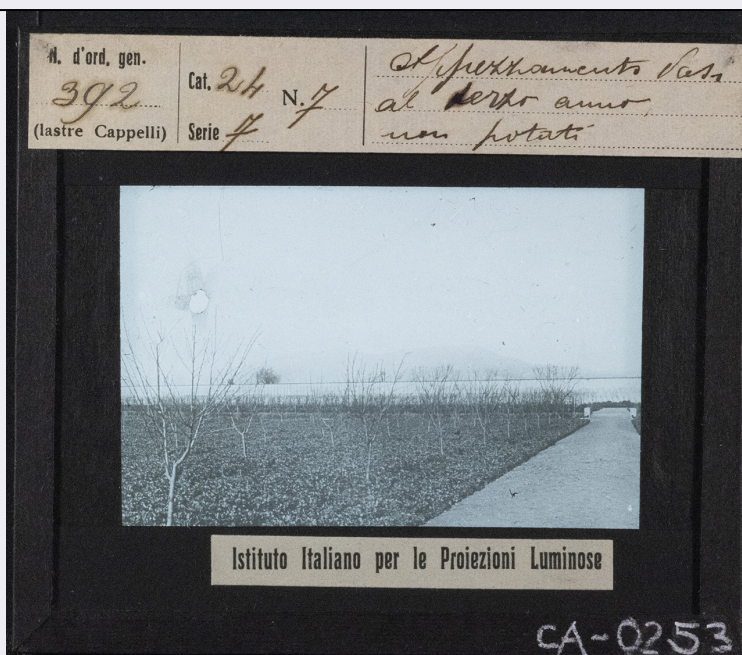 N. d'ord. gen.
392
(lastre Cappelli)
Cat. 24
Serie 7
N. 7
Appezzamento Vasi
al terzo anno
non potati
Istituto Italiano per le Proiezioni Luminose
CA-0253